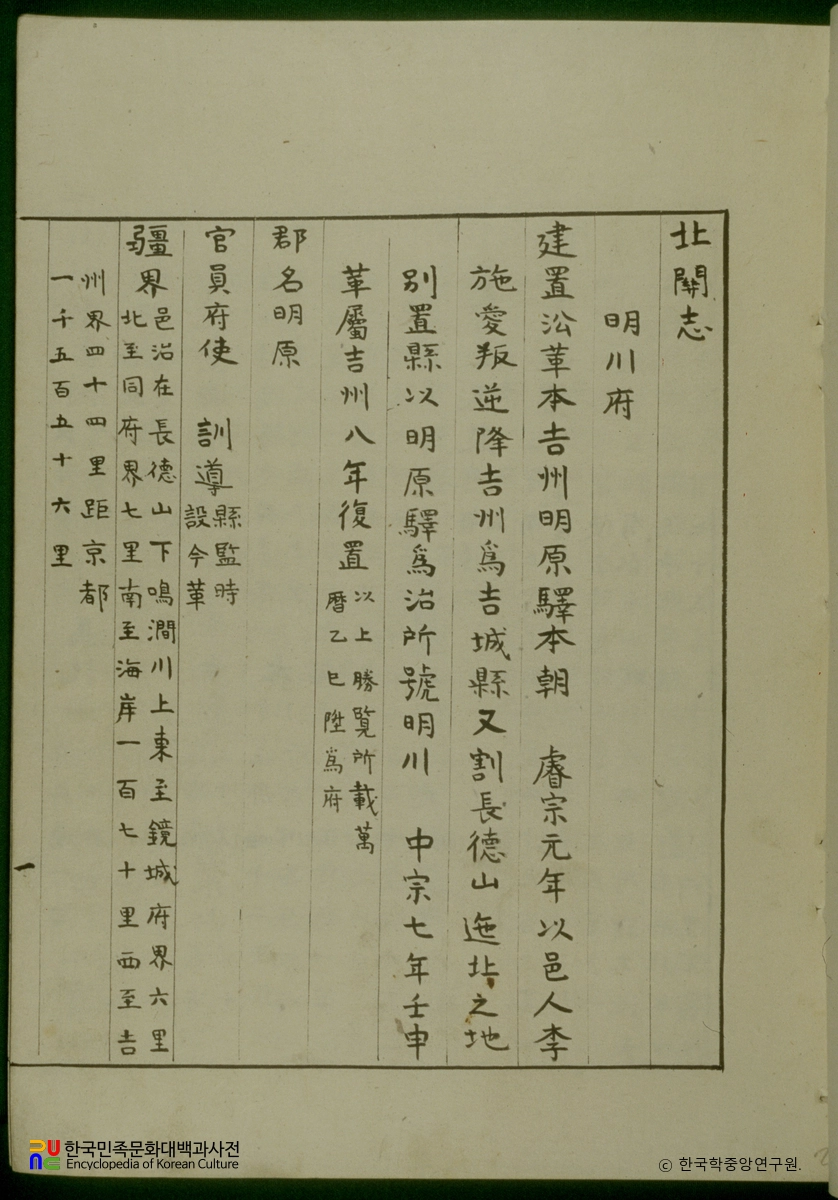 北關志
明川府
建置沿革本吉州明原驛本朝 睿宗元年以邑人李
施愛叛逆降吉州爲吉城縣又割長德山迤北之地
別置縣以明原驛爲治所號明川 中宗七年壬申
革屬吉州八年復置
以上勝覽所載萬
曆乙巳陞爲府
郡名明原
官員府使 訓導
縣監時
設今革
疆界
邑治在長德山下鳴澗川上東至鏡城府界六里
北至同府界七里南至海岸一百七十里西至吉
州界四十四里距京都
一千五百五十六里
一
한국민족문화대백과사전
Encyclopedia of Korean Culture
© 한국학중앙연구원.